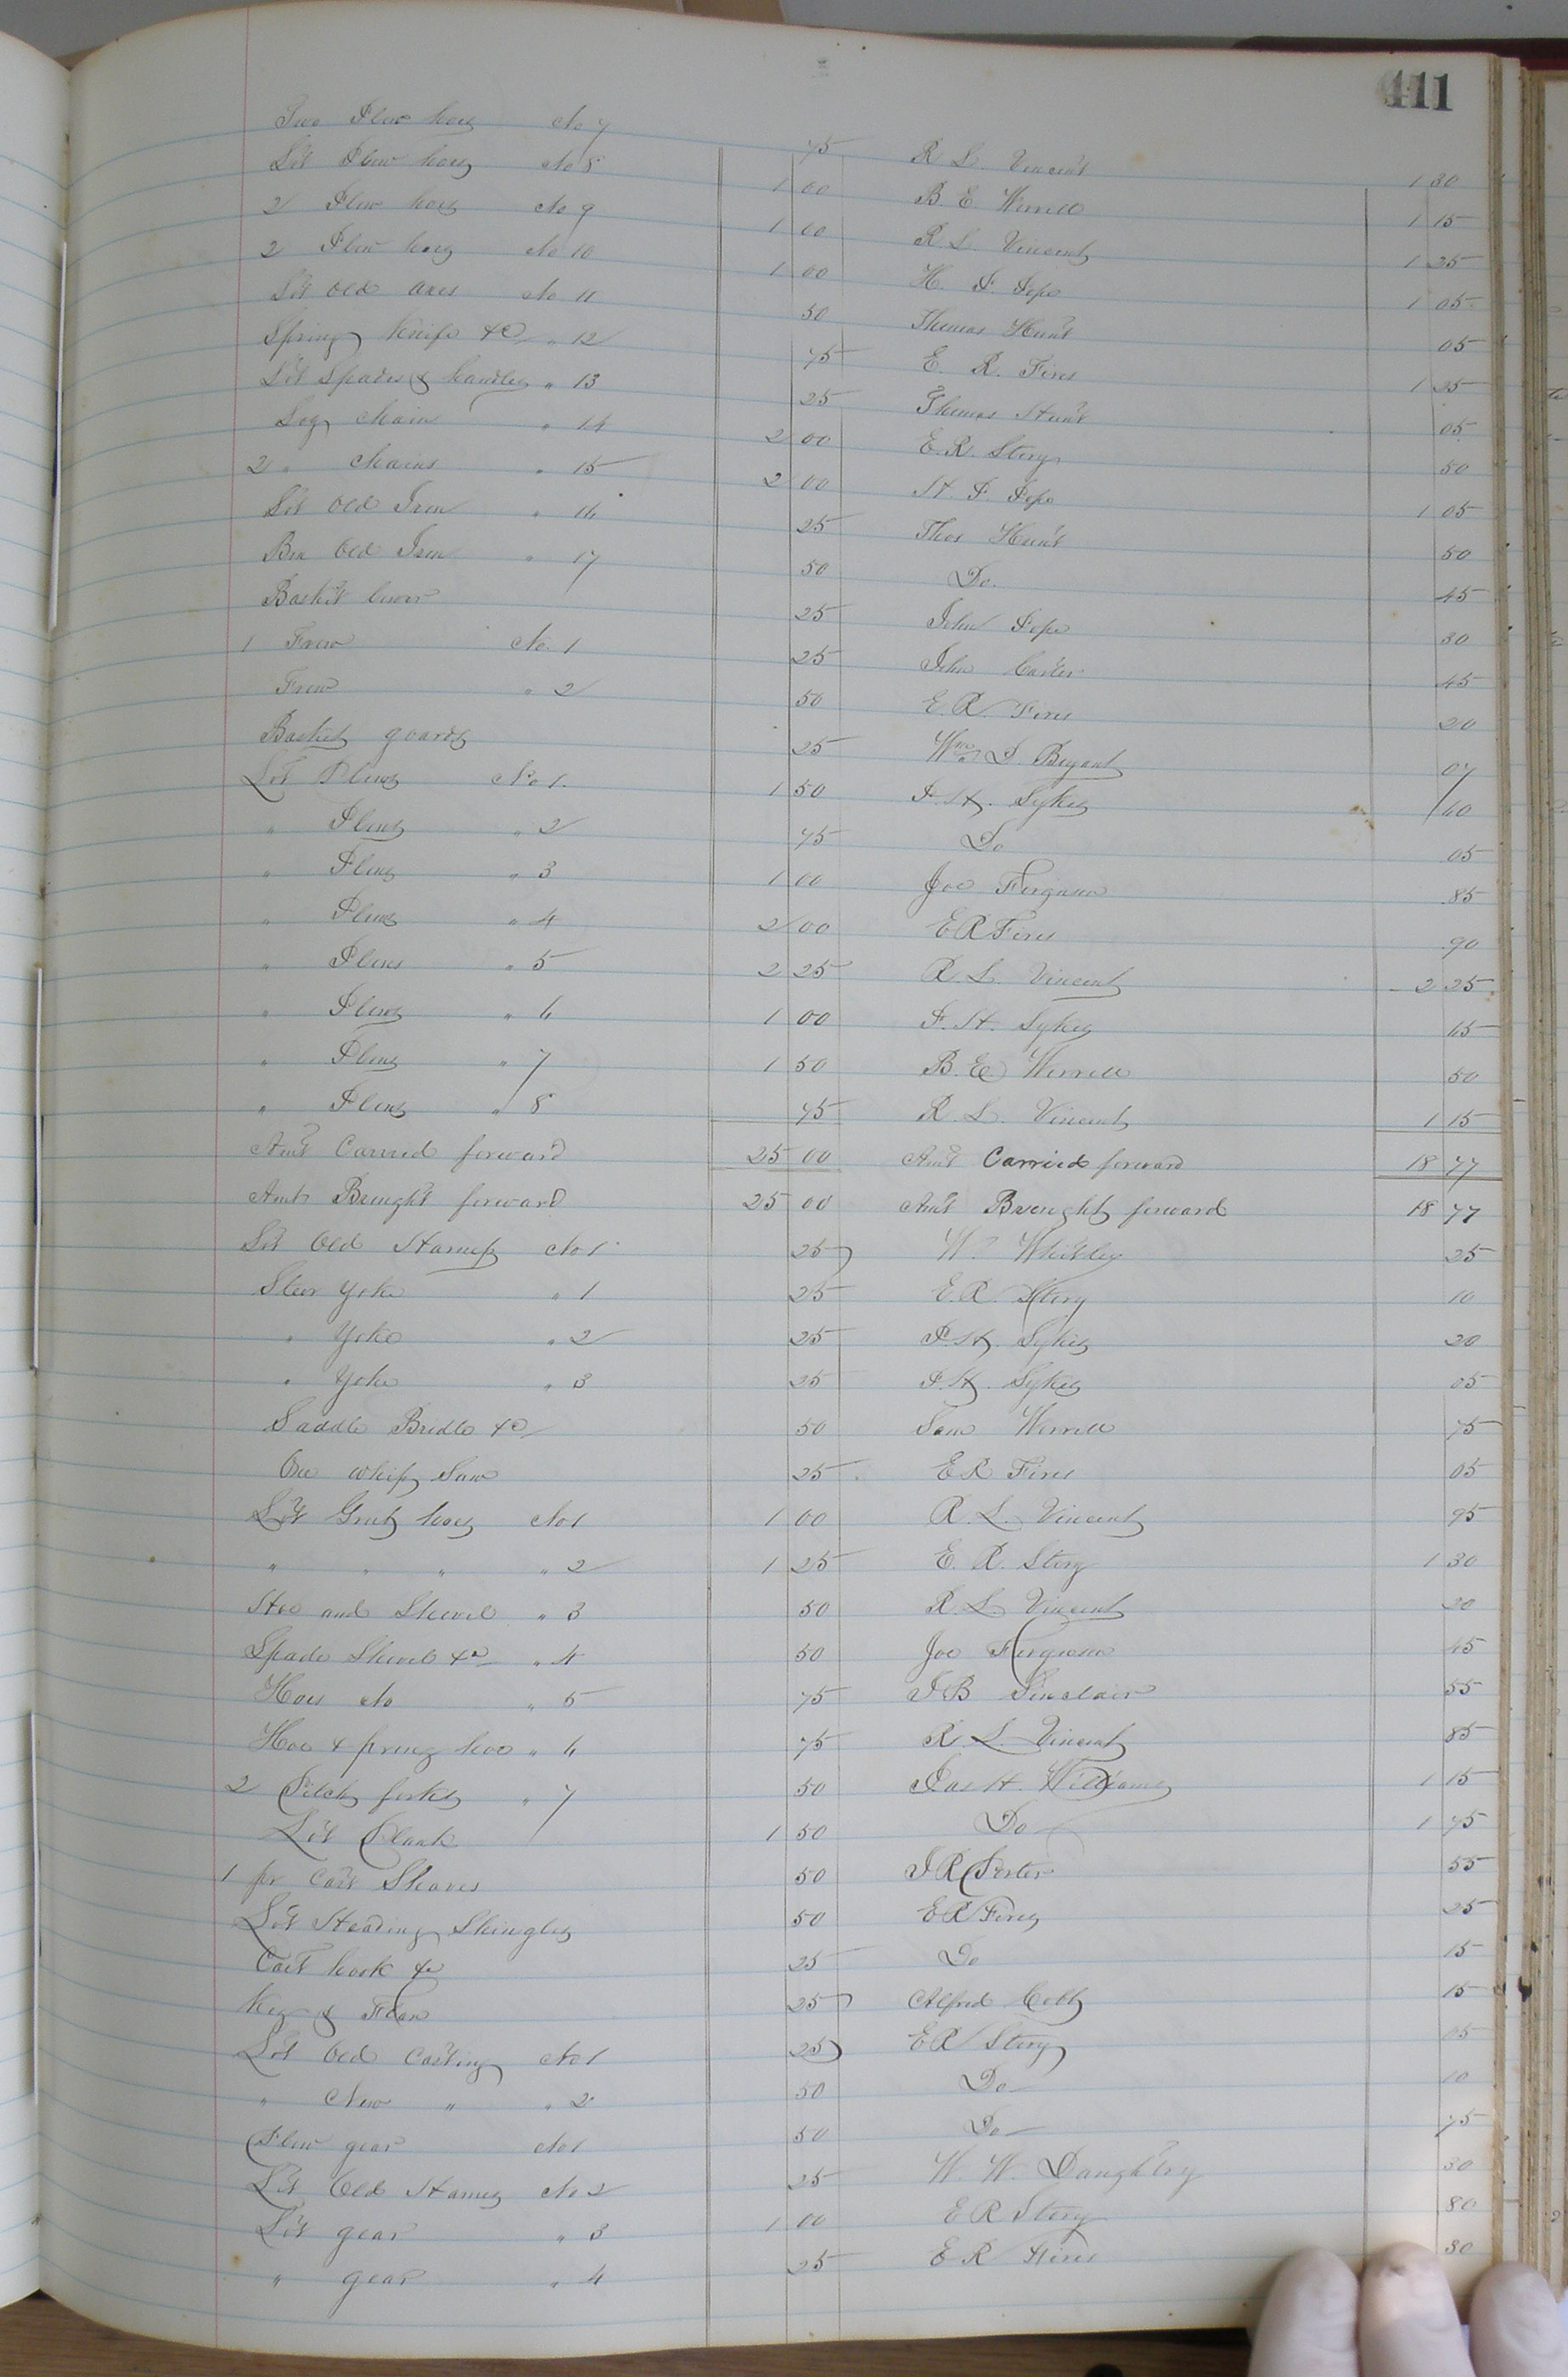 411
Two Plow hoes No 7 75 R. L. Vincent 1 30
Lot Plow hoes No 8 1 00 B. E. Worrell 1 15
2 Plow hoes No 9 1 00 R. L. Vincent 1 25
2 Plow hoes No 10 1 00 H. P. Pope 1 05
Lot old axes No 11 50 Thomas Hunt 05
Spring Knife &c " 12 75 E. R. Fires 1 25
Lot Spades & handles " 13 25 Thomas Hunt 05
Log chain " 14 2 00 E. R. Story 50
2 " chains " 15 2 00 H. P. Pope 1 05
Lot Old Iron " 16 25 Thos Hunt 50
Box Old Iron " 17 50 Do. 45
Basket 25 John Pope 30
1 Frow No. 1 25 John Carter 45
Frow " 2 50 E. R. Fires 20
Basket goards 25 Wm. D. Bryant 07
Lot Plows No 1. 1 50 P. H. Sykes 60
" Plows " 2 75 Do 05
" Plows " 3 1 00 Joe Ferguson 85
" Plows " 4 2 00 E R Fires 90
" Plows " 5 2 25 R. L. Vincent 2 25
" Plows " 6 1 00 P. H. Sykes 15
" Plows " 7 1 50 B. E. Worrell 50
" Plows " 8 75 R. L. Vincent 1 15
Amt Carried forward 25 00 Amt Carried forward 18 77
Amt Brought forward 25 00 Amt Brought forward 18 77
Lot Old Harness No 1 25 W. Whitley 25
Steer Yoke " 1 25 E. R. Story 10
" Yoke " 2 25 P. H. Sykes 20
" Yoke " 3 25 P. H. Sykes 05
Saddle Bridle &c 50 Sam Worrell 75
One whip Saw 25 E R Fires 05
Lot Grub hoes No 1 1 00 R. L. Vincent 95
" " " " 2 1 25 E. R. Story 1 30
Hoe and Shovel " 3 50 R. L. Vincent 20
Spade Shovel &c " 4 50 Joe Ferguson 45
Hoes No " 5 75 J B Sinclair 55
Hoe & prong hoe " 6 75 R. L. Vincent 85
2 Pitch forks " 7 50 Jas H. Williams 1 15
Lot Plank 1 50 Do 1 75
1 pr Cart Shaves 50 J R Porter 55
Lot Heading Shingles 50 E R Fires 25
Cart hook &c 25 Do 15
Keg & 25 Alfred Cobb 15
Lot Old Casting No 1 25 E R Story 05
" New " " 2 50 Do 10
Plow gear No 1 50 Do 75
Lot Old Hames No 2 25 W. W. Daughtry 30
Lot gear " 3 1 00 E R Story 80
" gear " 4 25 E R Fires 30